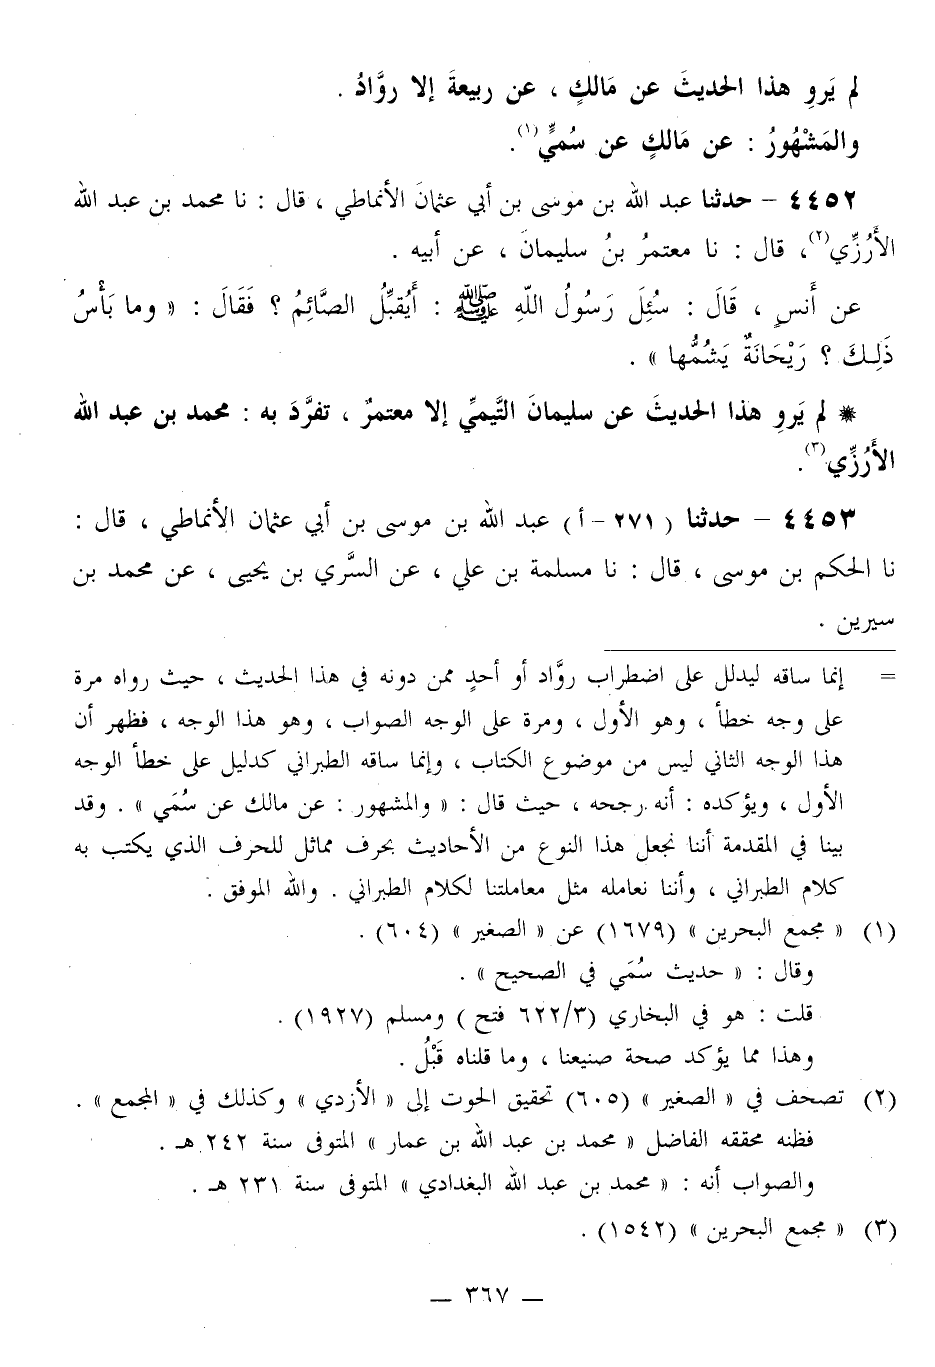 لم يَروِ هذا الحديثَ عن مَالكٍ ، عن ربيعةَ إلا روَّادُ .
والمَشْهُورُ : عن مَالكٍ عن سُمَيٍّ(١).
٤٤٥٢ – حدثنا عبد الله بن موسى بن أبي عثمانَ الأنماطي ، قال : نا محمد بن عبد الله
الأَرُزِّي(٢)، قال : نا معتمرُ بنُ سليمانَ ، عن أبيه .
عن أَنسٍ ، قَالَ : سُئِلَ رَسُولُ اللّهِ ﷺ : أَيُقبِّلُ الصَّائِمُ ؟ فَقَالَ : « وما بَأْسُ
ذَلِكَ ؟ رَيْحَانَةٌ يَشُمُّها » .
* لم يَروِ هذا الحديثَ عن سليمانَ التَّيميِّ إلا معتمرٌ ، تفرَّدَ به : محمد بن عبد الله
الأَرُزِّي(٣).
٤٤٥٣ – حدثنا ( ٢٧١ – أ ) عبد الله بن موسى بن أبي عثمان الأنماطي ، قال :
نا الحكم بن موسى ، قال : نا مسلمة بن علي ، عن السَّري بن يحيى ، عن محمد بن
سيرين .
= إنما ساقه ليدلل على اضطراب روَّاد أو أحدٍ ممن دونه في هذا الحديث ، حيث رواه مرة
على وجه خطأ ، وهو الأول ، ومرة على الوجه الصواب ، وهو هذا الوجه ، فظهر أن
هذا الوجه الثاني ليس من موضوع الكتاب ، وإنما ساقه الطبراني كدليل على خطأ الوجه
الأول ، ويؤكده : أنه رجحه ، حيث قال : « والمشهور : عن مالك عن سُمَي » . وقد
بينا في المقدمة أننا نجعل هذا النوع من الأحاديث بحرف مماثل للحرف الذي يكتب به
كلام الطبراني ، وأننا نعامله مثل معاملتنا لكلام الطبراني . والله الموفق .
(١) « مجمع البحرين » (١٦٧٩) عن « الصغير » (٦٠٤) .
وقال : « حديث سُمَي في الصحيح » .
قلت : هو في البخاري (٦٢٢/٣ فتح ) ومسلم (١٩٢٧) .
وهذا مما يؤكد صحة صنيعنا ، وما قلناه قَبْلُ .
(٢) تصحف في « الصغير » (٦٠٥) تحقيق الحوت إلى « الأزدي » وكذلك في « المجمع » .
فظنه محققه الفاضل « محمد بن عبد الله بن عمار » المتوفى سنة ٢٤٢ هـ .
والصواب أنه : « محمد بن عبد الله البغدادي » المتوفى سنة ٢٣١ هـ .
(٣) « مجمع البحرين » (١٥٤٢) .
— ٣٦٧ —